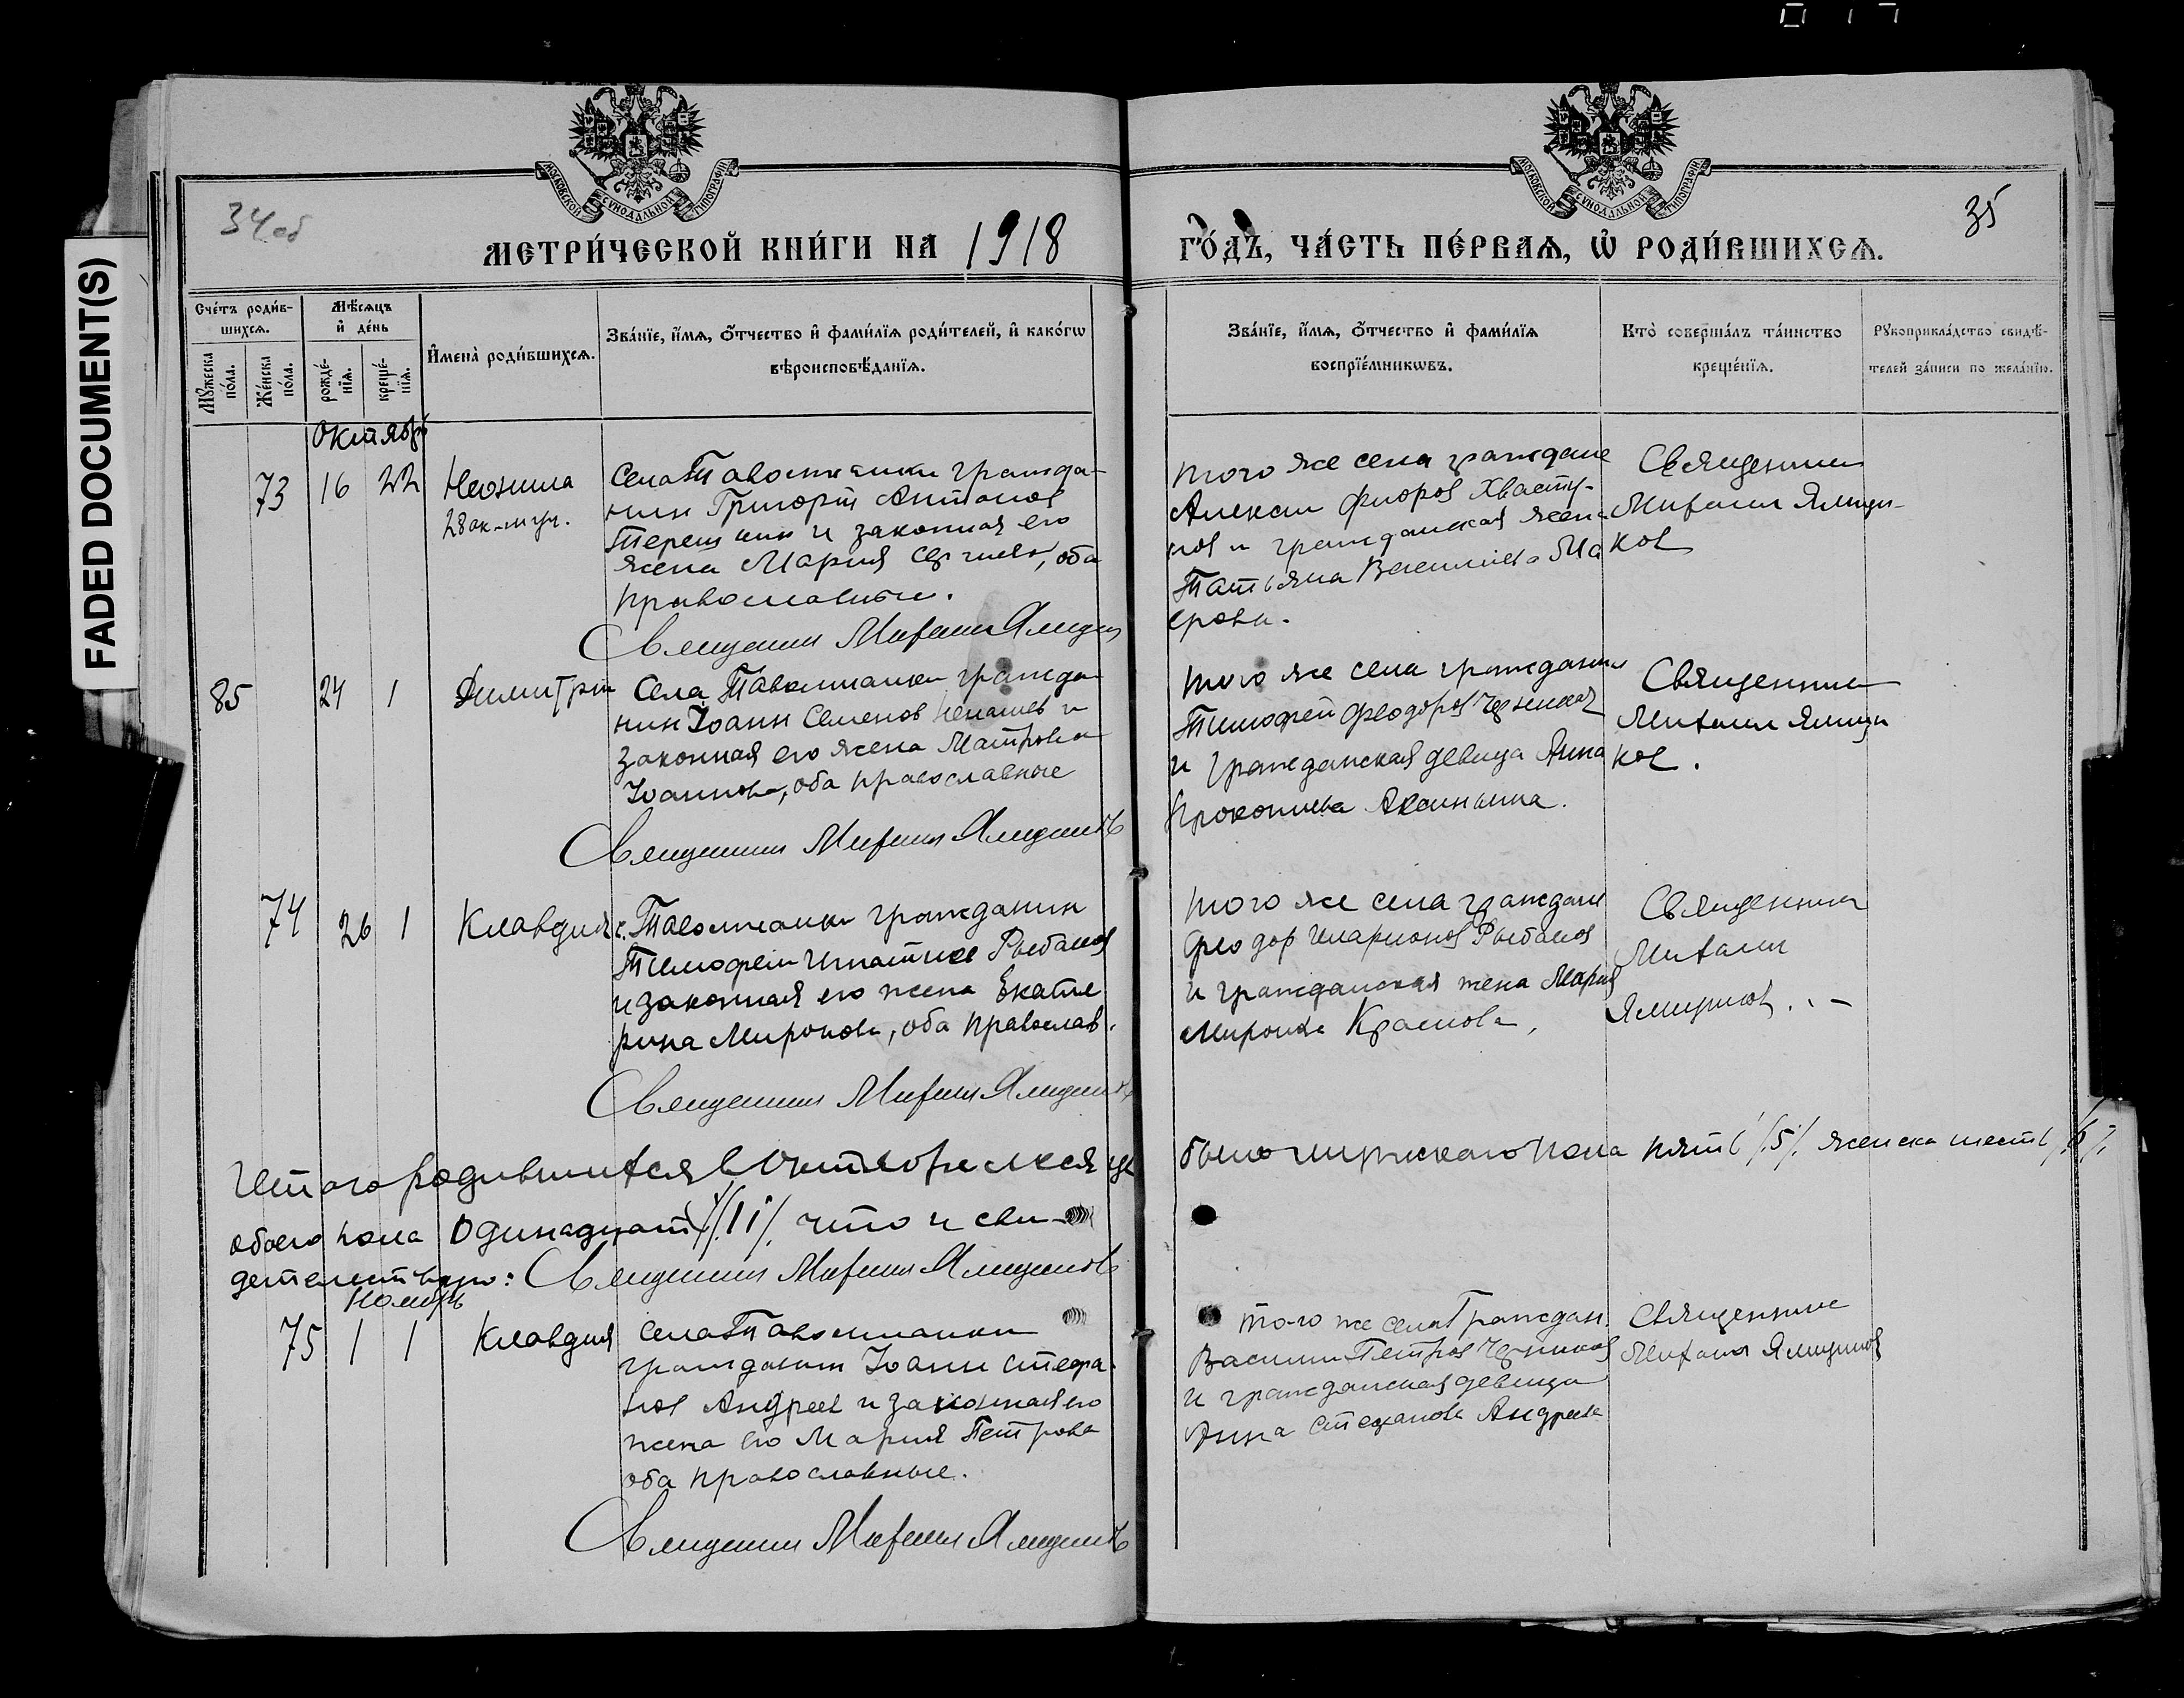 FADED DOCUMENT(S)
34об
35
МОСКОВСКОЙ СУНОДАЛЬНОЙ ТИПОГРАФІИ
МОСКОВСКОЙ СУНОДАЛЬНОЙ ТИПОГРАФІИ
МЕТРИ́ЧЕСКОЙ КНИ́ГИ НА 1918 ГО́ДЪ, ЧА́СТЬ ПЕ́РВАѦ, Ѡ҆ РОДИ́ВШИХСѦ.
Сче́тъ роди́в-
шихсѧ.
Мꙋ́жеска по́ла.
Же́нска по́ла.
Мѣ́сѧцъ
и҆ де́нь
рожде́-
нїѧ.
креще́-
нїѧ.
И҆мена̀ роди́вшихсѧ.
Зва́нїе, и҆́мѧ, ѻ҆́тчество и҆ фами́лїѧ роди́телей, и҆ како́гѡ
вѣроисповѣ́данїѧ.
Зва́нїе, и҆́мѧ, ѻ҆́тчество и҆ фами́лїѧ
воспрїе́мникѡвъ.
Кто̀ соверша́лъ та́инство
креще́нїѧ.
Рꙋкоприкла́дство свидѣ́-
телей за́писи по жела́нїю.
Октябрь
73 16 22 Неонила
28 ок-муч.
Села Таволжанки гражда-
нин Григорий Антонов
Терешкин и законная его
жена Мария Сергиева, оба
православные.
Священник Михаил Ямщиков
того же села граждане
Алексий Флоров Хвасту-
нов и гражданская жена
Татьяна Васильева Ма
ерова.
Священник
Михаил Ямщи-
ков
85 24 1 Димитрий
Села Таволжанки гражда-
нин Иоанн Семенов Ненашев и
законная его жена Матрона
Иоаннова, оба православные
Священник Михаил Ямщиковъ
того же села гражданин
Тимофей Феодоров
и гражданская девица Анна
Прокопиева Аксиньина.
Священник
Михаил Ямщи
ков.
74 26 1 Клавдия
с. Таволжанки гражданин
Тимофей Игнатиев Рыбалов
и законная его жена Екате
рина Миронова, оба православ.
Священник Михаил Ямщиковъ
того же села граждане
Феодор Иларионов Рыбалов
и гражданская жена Мария
Миронова Краснова,
Священник
Михаил
Ямщиков.
Итого родившихся в Октябре месяце было мужескаго пола пять /5/ женска шесть /6/
обоего пола одинадцать /11/ что и сви-
детельствую: Священник Михаил Ямщиковъ
Ноябрь
75 1 1 Клавдия
села Таволжанки
гражданин Иоанн Стефа-
нов Андреев и законная его
жена его Мария Петрова
оба православные.
Священник Михаил Ямщиковъ
того же села Граждан.
Василий Петров
и гражданская девица
Анна Стефанова Андреева
Священник
Михаил Ямщиков